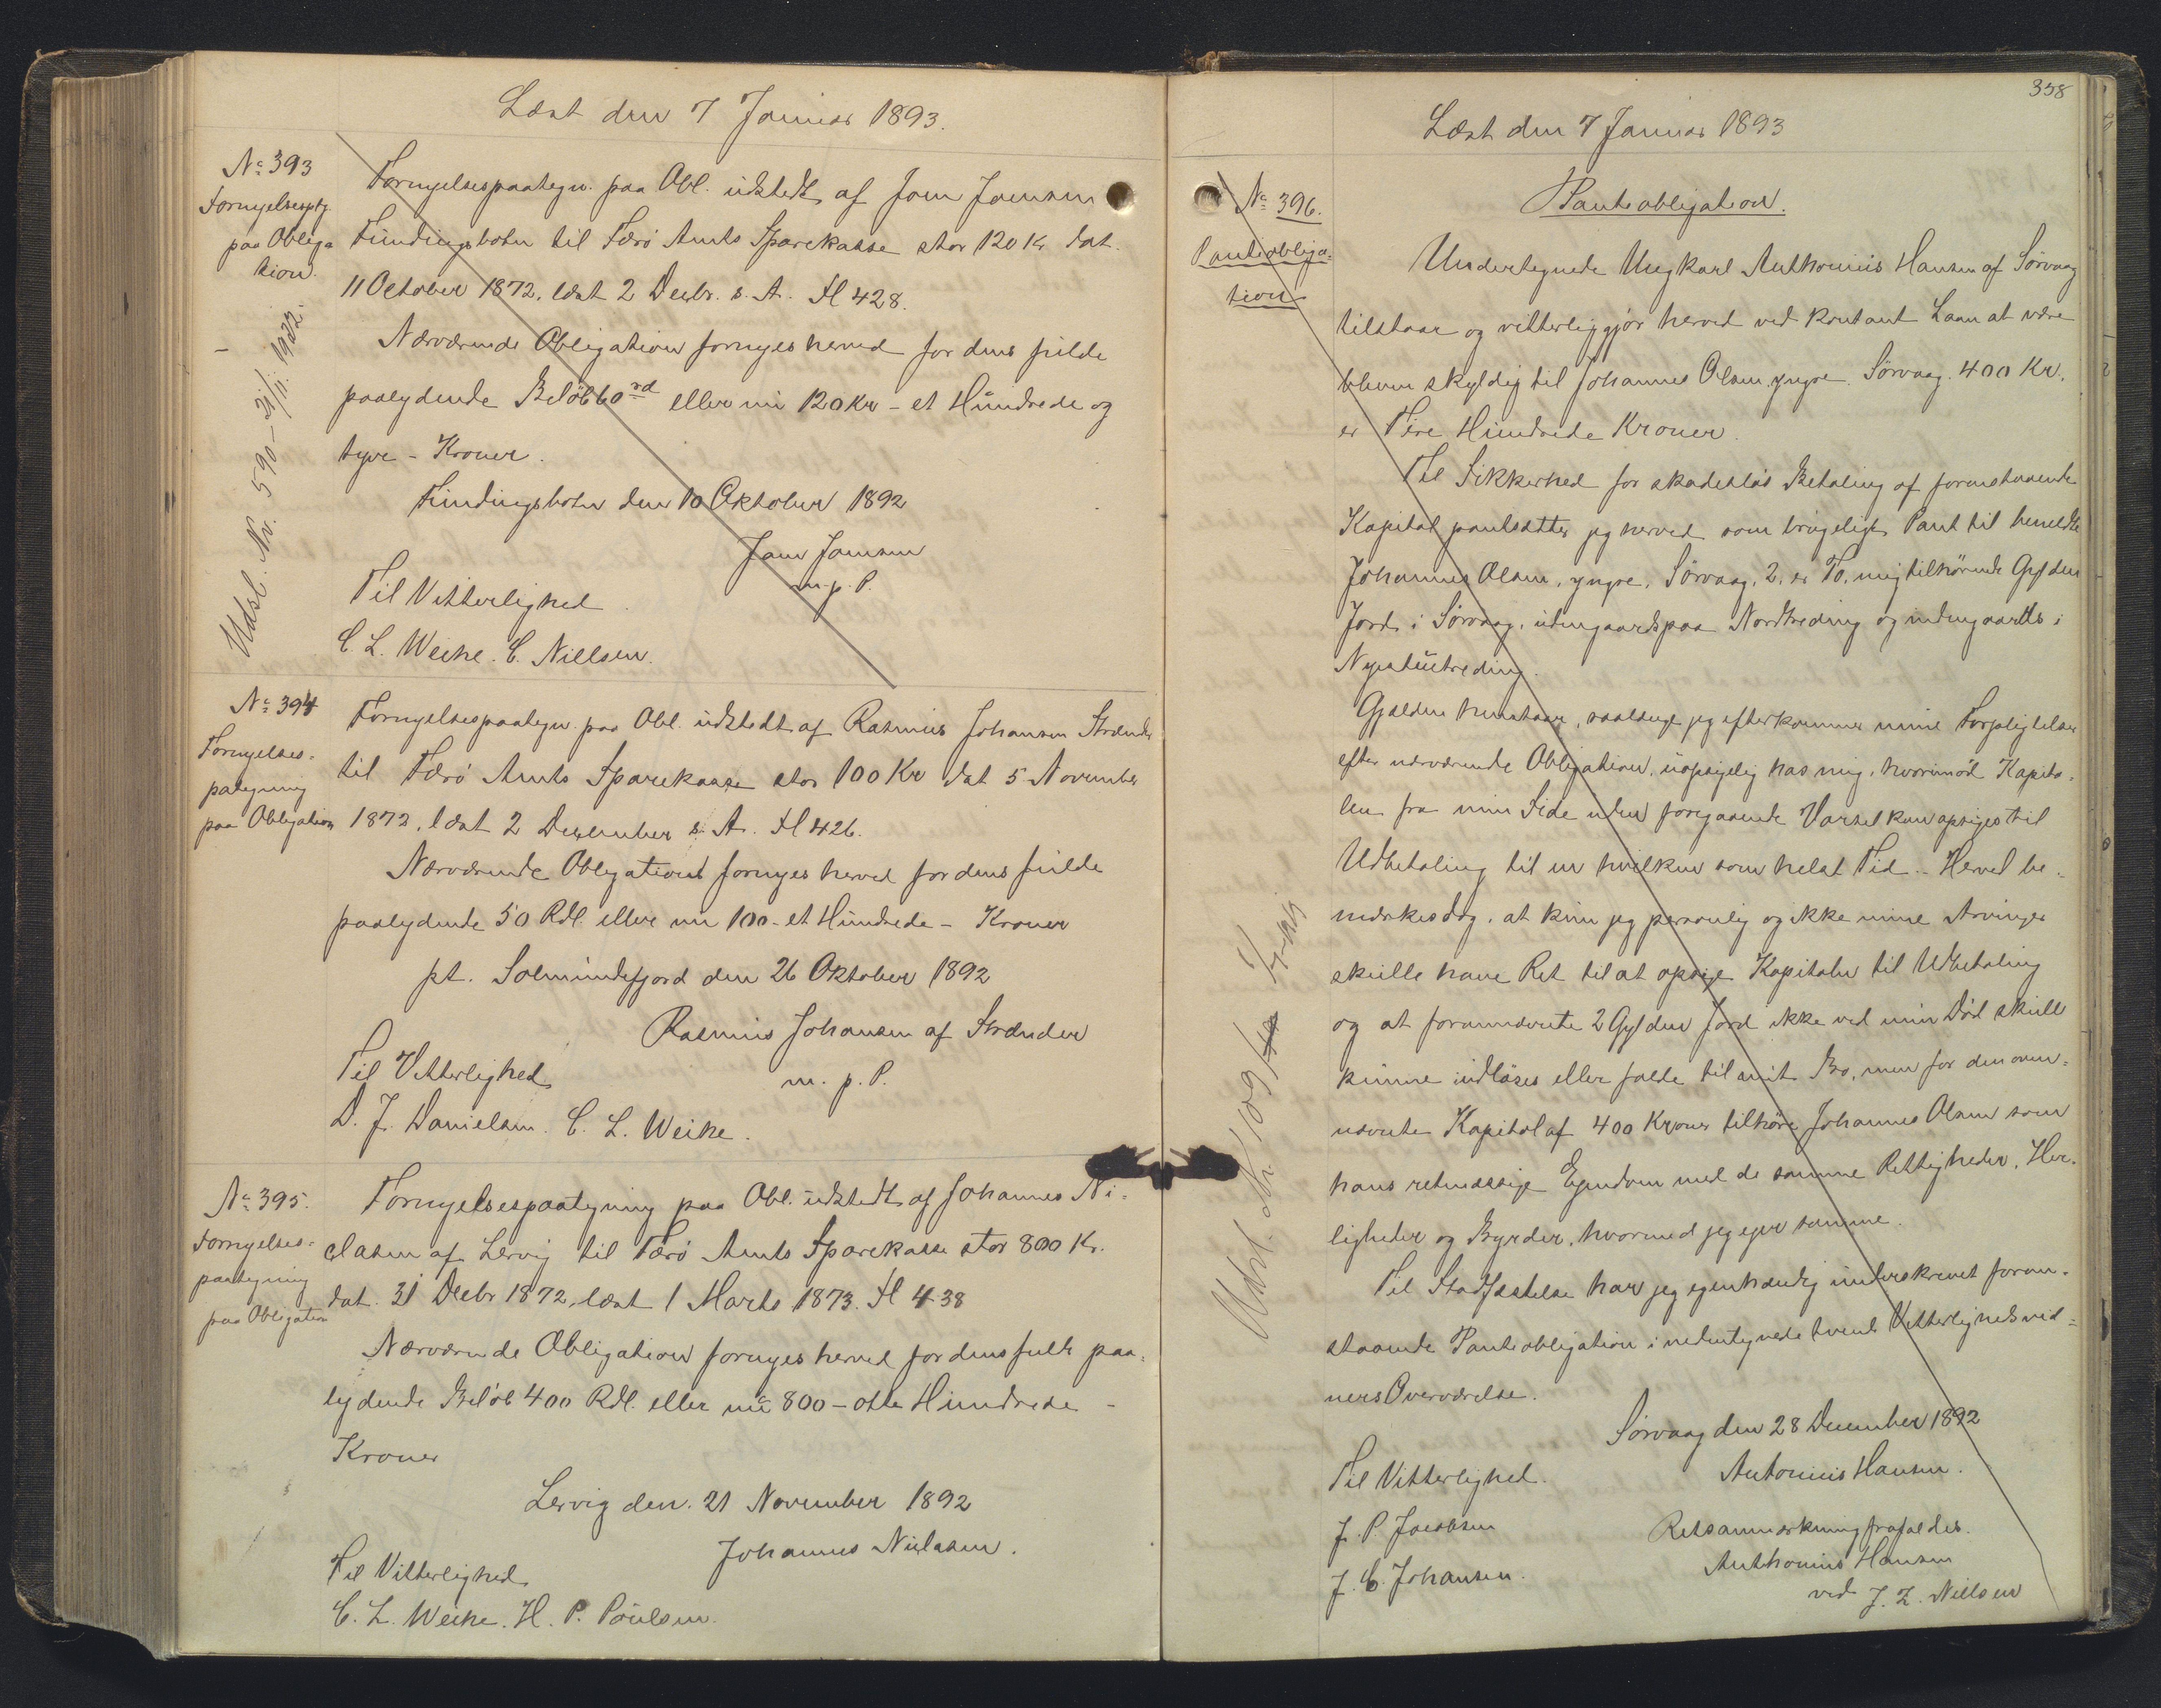 Læst den 7 Januar 1893.
No 393
Fornyelsesptg.
paa Obliga
tion.
Udsl. Nr. 590 - 21/11. 1922.
Fornyelsespaategn. paa Obl. udstedt af Joen Joensen
Fundingsbotn til Færö Amts Sparekasse stor 120 Kr. dat.
11 October 1872, læst 2 Decbr. s. A. Fl 428.
Nærværende Obligation fornyes herved for dens fulde
paalydende Beløb 60 rd eller nu 120 Kr - et Hundrede og
tyve - Kroner.
Fundingsbotn den 10 Oktober 1892
Joen Joensen
m. p. P.
Til Vitterlighed
C. L. Weihe. C. Nielsen.
No 394
Fornyelses-
pategning
paa Obligation
Fornyelsespaategn. paa Obl. udstedt af Rasmus Johansen Strænder
til Færö Amts Sparekasse stor 100 Kr dat 5 November
1872, læst 2 December s. A. Fl 426.
Nærværende Obligation fornyes herved for dens fulde
paalydende 50 Rdl. eller nu 100 - et Hundrede - Kroner
pt. Solmundefjord den 26 Oktober 1892
Rasmus Johansen af Strænder
m. p. P.
Til Vitterlighed
D. J. Danielsen. C. L. Weihe.
No 395.
Fornyelses-
paategning
paa Obligation
Fornyelsespaategning paa Obl. udstedt af Johannes Ni-
clasen af Lervig til Færö Amts Sparekasse stor 800 Kr.
dat. 31 Decbr 1872, læst 1 Marts 1873. Fl 438
Nærværende Obligation fornyes herved for dens fulde paa-
lydende Beløb 400 Rdl. eller nu 800 - otte Hundrede -
Kroner
Lervig den. 21 November 1892
Johannes Niclasen.
Til Vitterlighed
C. L. Weihe. H. P. Poulsen.
358
Læst den 7 Januar 1893
No 396.
Panteobliga-
tion
Udsl. Nr. 109
Panteobligation.
Undertegnede Ungkarl Anthonius Hansen af Sörvaag
tilstaar og vitterliggjör herved ved kontant Laan at være
bleven skyldig til Johannes Olsen, yngre. Sörvaag. 400 Kr.
er Fire Hundrede Kroner.
Til Sikkerhed for skadeslös Betaling af foranstaaende
Kapital pantsætter jeg herved som brugeligt Pant til bemeldte
Johannes Olsen, yngre, Sörvaag, 2, er To, mig tilhørende Gylden
Jord i Sörvaag, udengaards paa Nordtreding og indengaards i
Nyestutreding.
Gjælden henstaar, saalænge jeg efterkommer mine Forpligtelser
efter nærværende Obligation, uopsigelig hos mig, hvorimod Kapita-
len fra min Side uden foregaaende Varsel kan opsiges til
Udbetaling til en hvilken som helst Tid. - Herved be-
mærkes dog, at kun jeg personlig og ikke mine Arvinger
skulle have Ret til at opsige Kapitalen til Udbetaling
og at forannævnte 2 Gylden Jord ikke ved min Död skulle
kunne indlöses eller falde til mit Bo, men for den oven-
nævnte Kapital af 400 Kroner tilhöre Johannes Olsen som
hans retmæssige Ejendom med de samme Rettigheder, Her-
ligheder og Byrder, hvormed jeg ejer samme.
Til Stadfæstelse har jeg egenhændig underskrevet foran-
staaende Panteobligation i nedentegnede tvende Vitterlighedsvid-
ners Overværelse.
Sörvaag den 28 December 1892
Antonius Hansen.
Til Vitterlighed.
J. P. Jacobsen
J. C. Johansen.
Retsanmærkning frafaldes.
Anthonius Hansen
ved J. Z. Nielsen